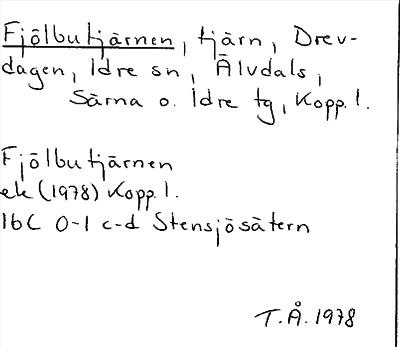 Fjölbutjärnen, tjärn, Drev-
dagen, Idre sn, Älvdals,
Särna o. Idre tg, Kopp. l.
Fjölbutjärnen
ek (1978) Kopp. l.
16C 0-1 c-d Stensjösätern
T.Å. 1978